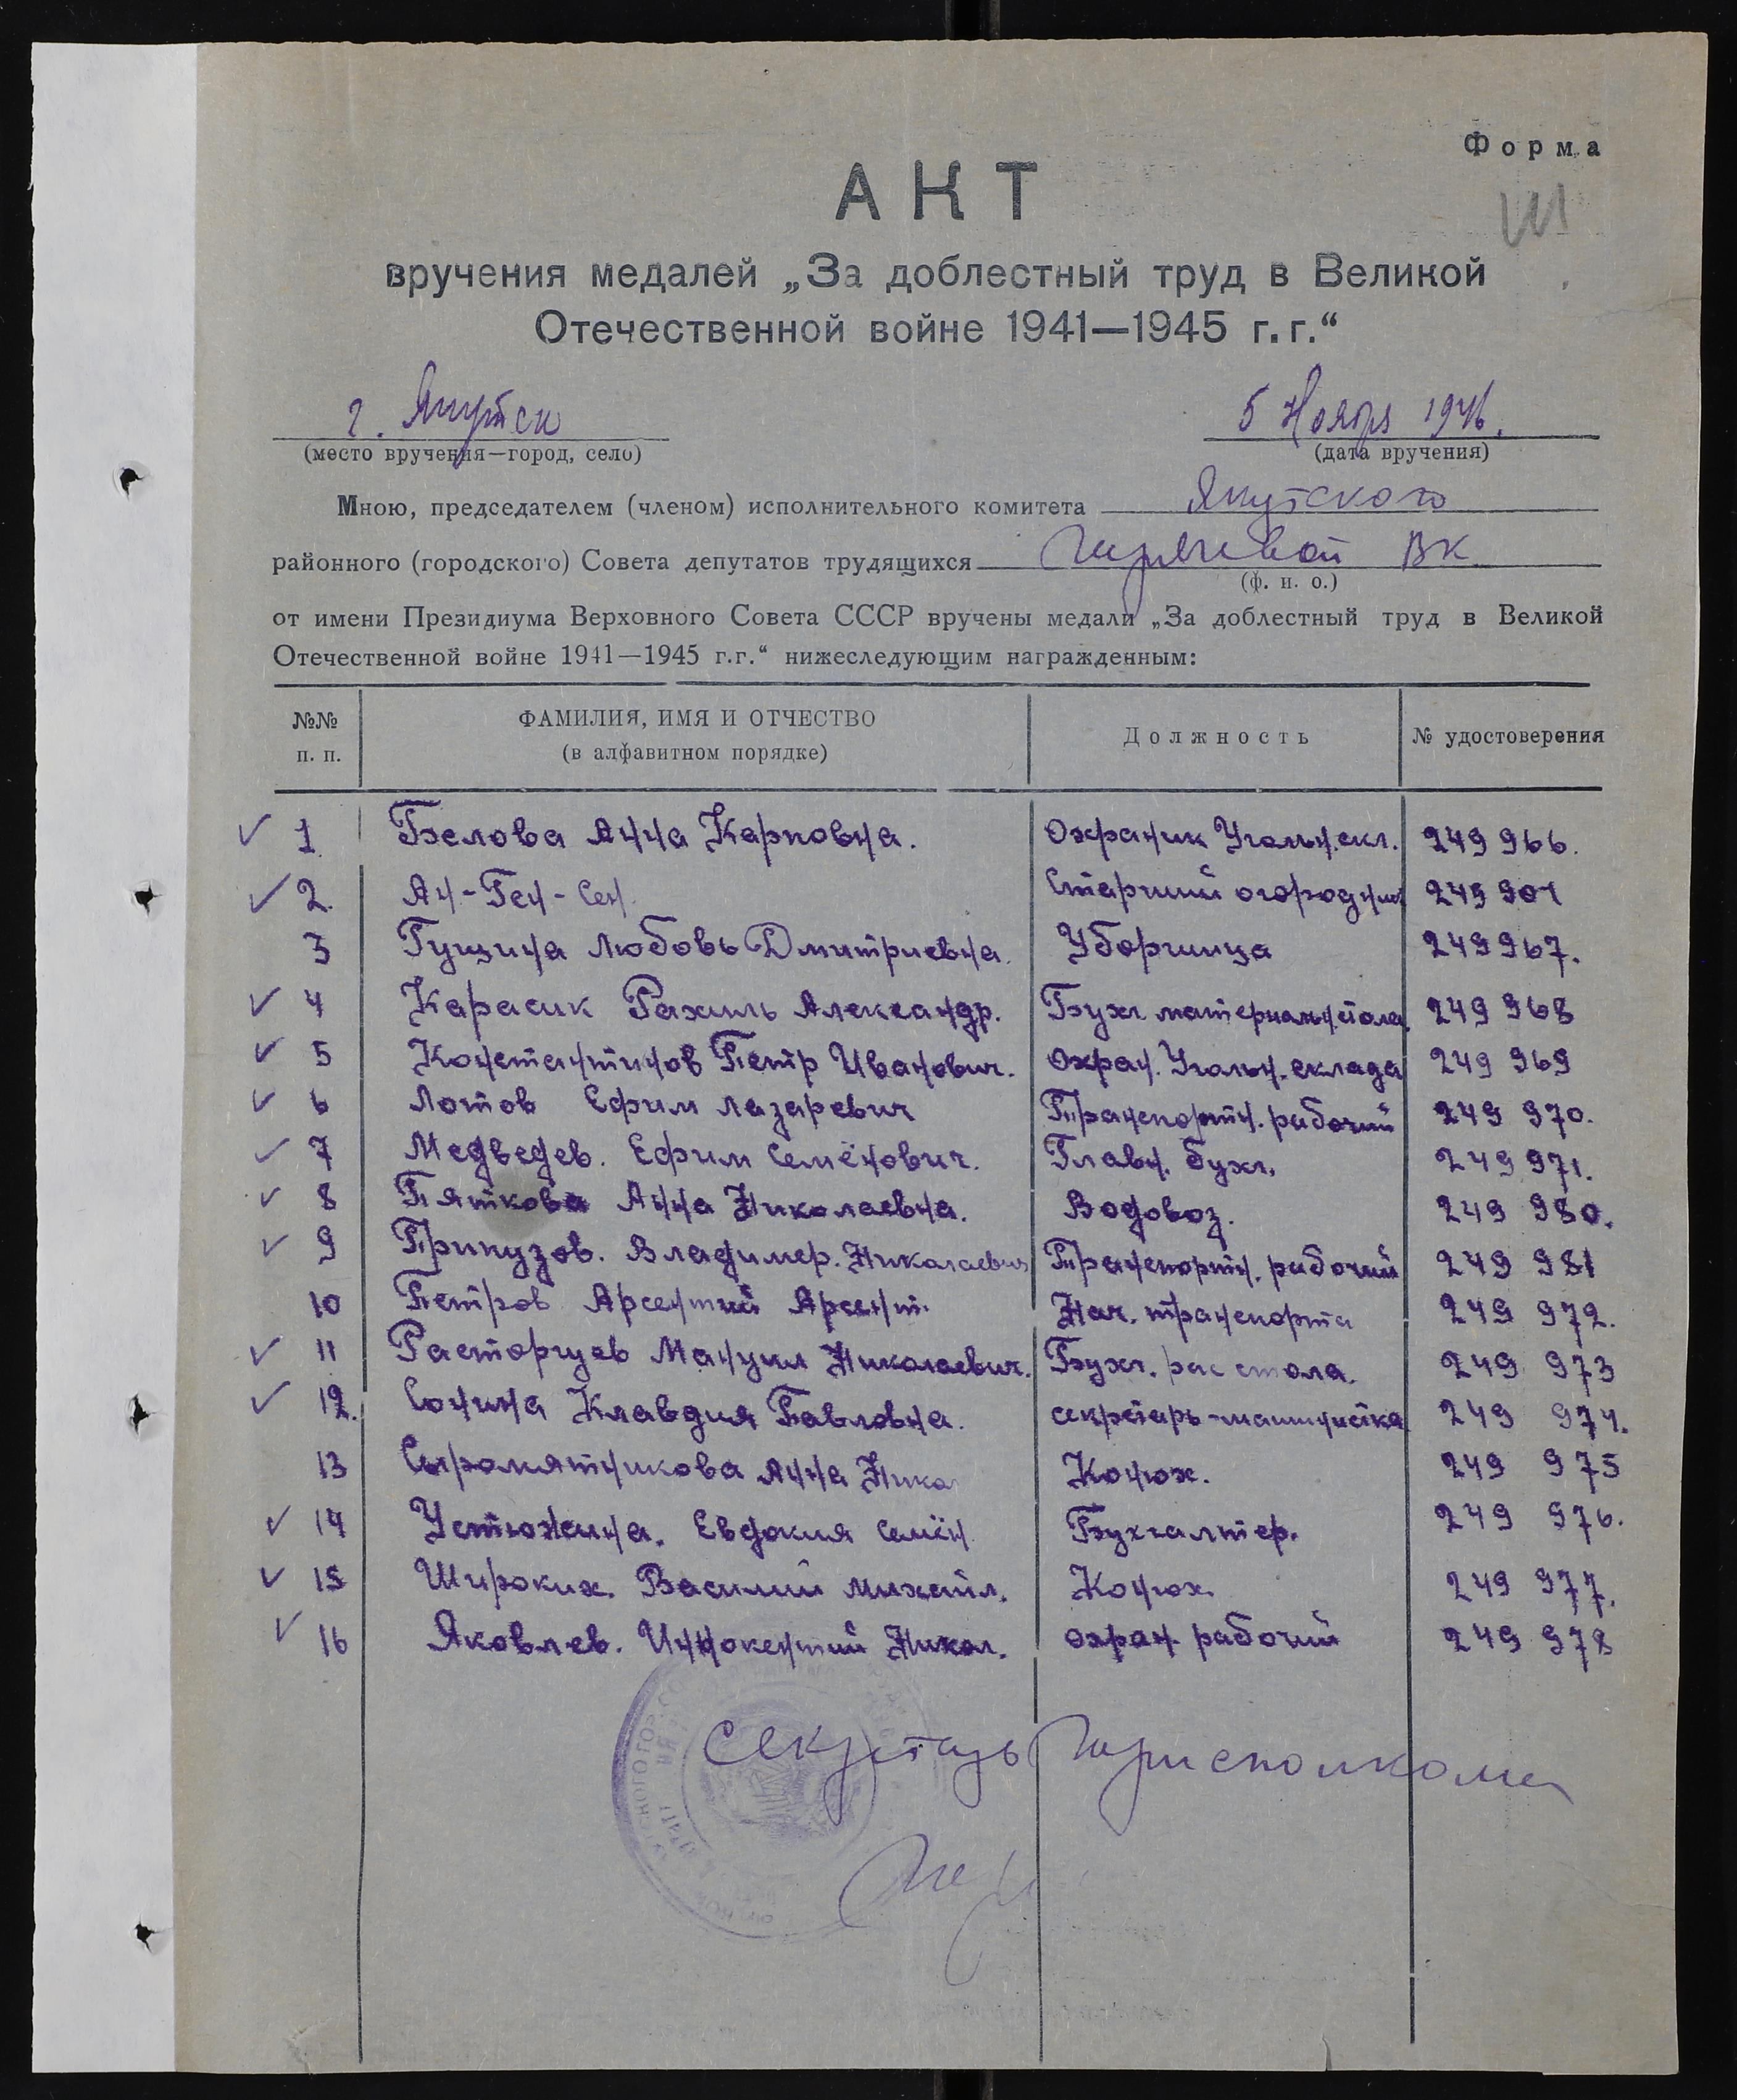 Форма
АКТ
вручения медалей „За доблестный труд в Великой
Отечественной войне 1941—1945 г.г.“
г. Якутск
5 Ноября 1946.
(место вручения—город, село)
(дата вручения)
Мною, председателем (членом) исполнительного комитета Якутского
районного (городского) Совета депутатов трудящихся ВК
(ф. и. о.)
от имени Президиума Верховного Совета СССР вручены медали „За доблестный труд в Великой
Отечественной войне 1941—1945 г.г.“ нижеследующим награжденным:
№№ п. п. ФАМИЛИЯ, ИМЯ И ОТЧЕСТВО (в алфавитном порядке) Должность № удостоверения
✓ 1 Белова Анна Карповна. Охраник Угольн.скл. 249 966.
✓ 2. Ан-Ген-Сен. Старший огородник 249 901
3 Гущина Любовь Дмитриевна. Уборщица 249967.
✓ 4 Карасик Рахиль Александр. Бухг материальн стола. 249 968
✓ 5 Константинов Петр Иванович. Охран. Угольн. склада 249 969
✓ 6 Лотов Ефим Лазаревич Транспортн. рабочий 249 970.
✓ 7 Медведев. Ефим Семёнович. Главн. бухг. 249 971.
✓ 8 Пяткова Анна Николаевна. Водовоз. 249 980.
✓ 9 Припузов. Владимер. Николаевич Транспортн. рабочий 249 981
10 Петров Арсентий Арсент. Нач. транспорта 249 972.
✓ 11 Расторгуев Мануил Николаевич. Бухг. рас стола. 249 973
✓ 12. Сонина Клавдия Павловна. секретарь-машинистка 249 974.
13 Сыромятникова Анна Ника Конюх. 249 975
✓ 14 Устюжина. Евдокия Семён Бухгалтер. 249 976.
✓ 15 Широких. Василий Михайл. Конюх. 249 977.
✓ 16 Яковлев. Иннокентий Никол. охран. рабочий 249 978
Секретарь Горисполкома